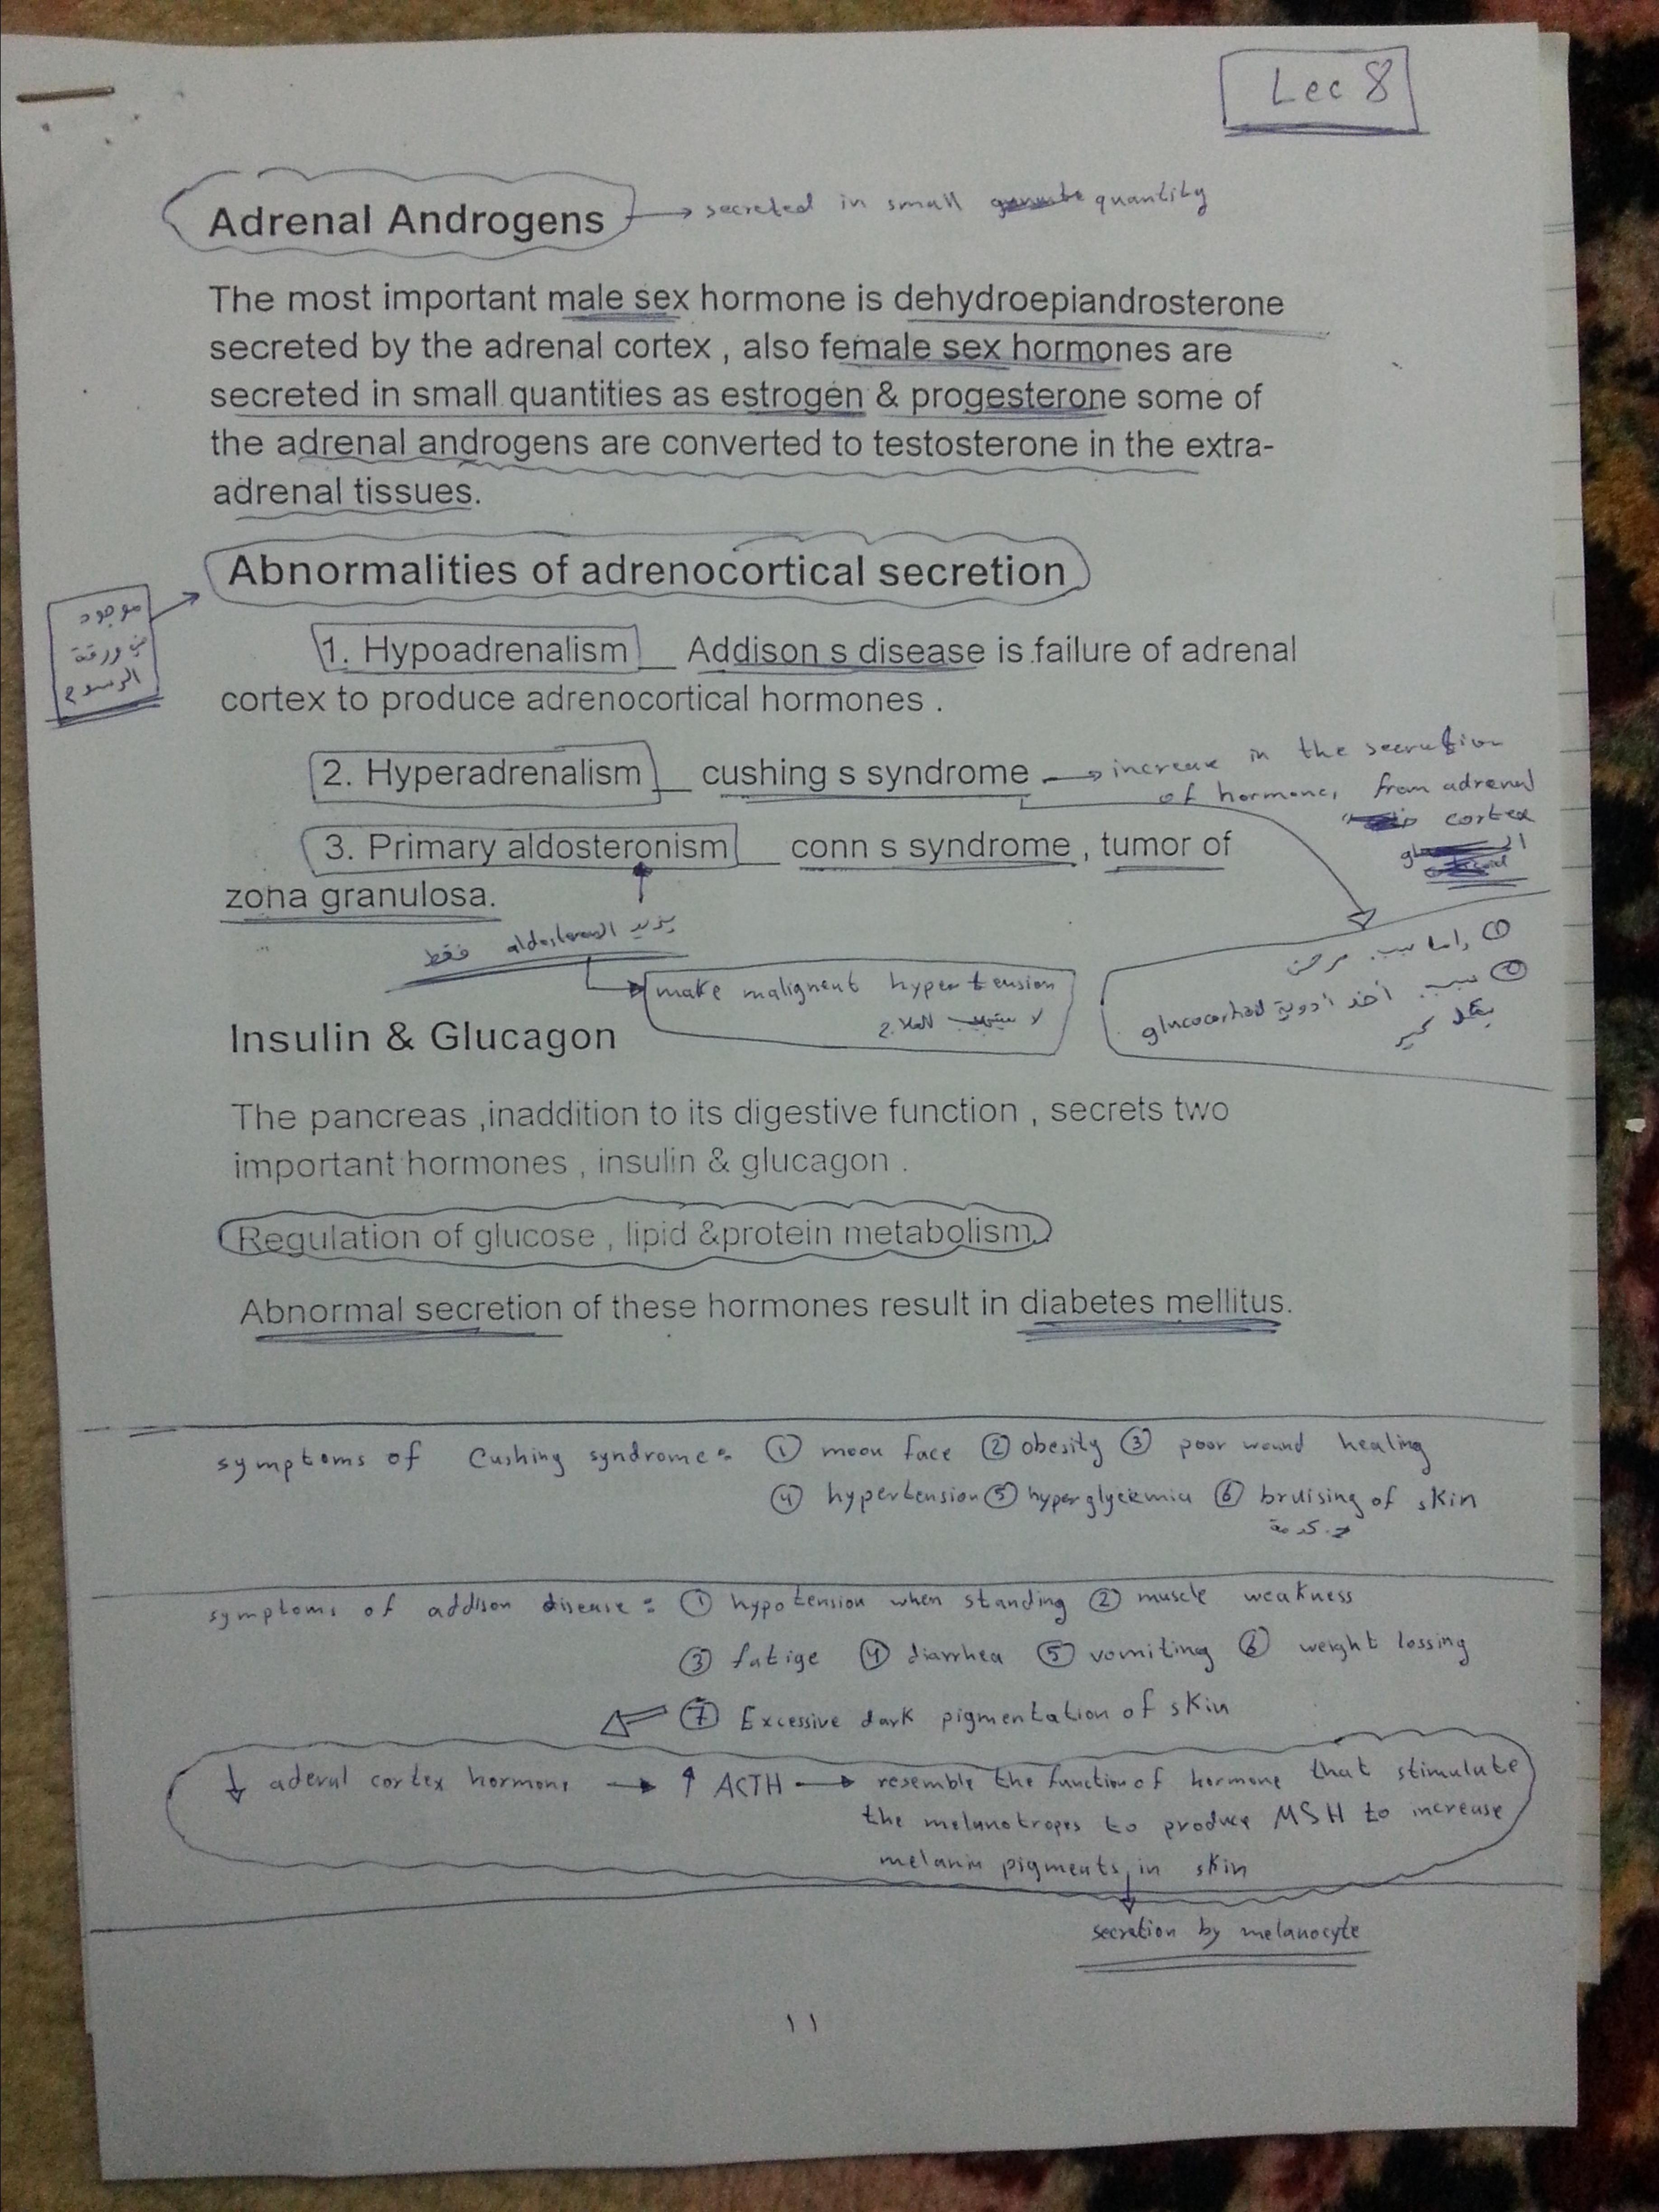 Lec 8
Adrenal Androgens → secreted in small quantity
The most important male sex hormone is dehydroepiandrosterone
secreted by the adrenal cortex , also female sex hormones are
secreted in small quantities as estrogen & progesterone some of
the adrenal androgens are converted to testosterone in the extra-
adrenal tissues.
Abnormalities of adrenocortical secretion
موجود
في ورقة
الرسوم
1. Hypoadrenalism __ Addison s disease is failure of adrenal
cortex to produce adrenocortical hormones .
2. Hyperadrenalism __ cushing s syndrome → increase in the secretion
of hormones from adrenal
cortex
3. Primary aldosteronism __ conn s syndrome , tumor of
zona granulosa.
يزيد الـ aldosterone فقط
make malignent hypertension
لا يستجيب للعلاج
① اما بسبب مرض
② بسبب أخذ أدوية glucocorticoid
بشكل كبير
Insulin & Glucagon
The pancreas ,inaddition to its digestive function , secrets two
important hormones , insulin & glucagon .
Regulation of glucose , lipid &protein metabolism
Abnormal secretion of these hormones result in diabetes mellitus.
symptoms of Cushing syndrome: ① moon face ② obesity ③ poor wound healing
④ hypertension ⑤ hyperglycemia ⑥ bruising of skin
symptoms of addison disease: ① hypotension when standing ② muscle weakness
③ fatige ④ diarrhea ⑤ vomiting ⑥ weight lossing
⑦ Excessive dark pigmentation of skin
↓ aderal cortex hormons → ↑ ACTH → resemble the function of hormone that stimulate
the melanotropes to produce MSH to increase
melanin pigments in skin
secretion by melanocyte
١١